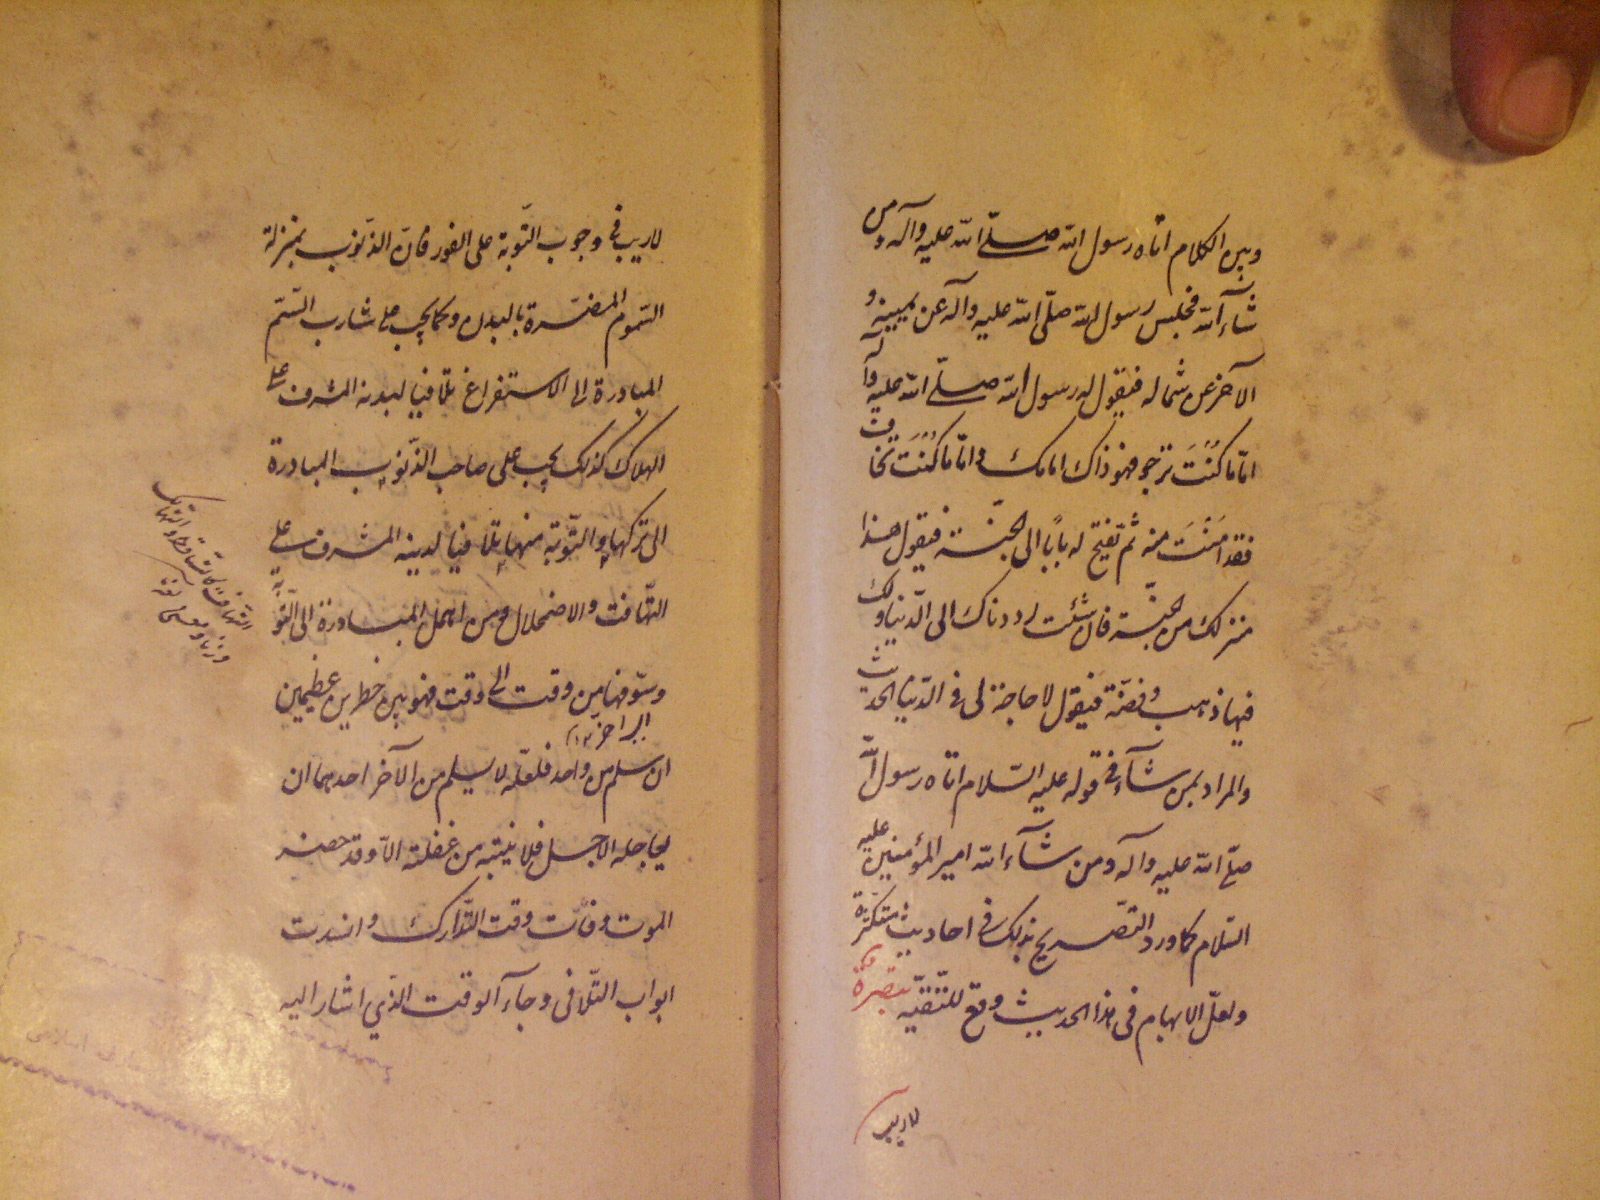 وبين الكلام اتاه رسول الله صلّى الله عليه وآله ومن
شآء الله فجلس رسول الله صلّى الله عليه وآله عن يمينه و
الآخر عن شماله فيقول له رسول الله صلّى الله عليه وآله
امّا ما كنتَ ترجو فهو ذاك امامك وامّا ما كنتَ تخاف
فقد امنتَ منه ثم يفتح له بابًا الى الجنّة فيقول هذا
منزلك من الجنّة فان شئت رددناك الى الدّنيا ولك
فيها ذهب وفضّة فيقول لا حاجة لى فى الدّنيا الحديث
والمراد بمن شآء فى قوله عليه السّلام اتاه رسول الله
صلّى الله عليه وآله ومن شآء الله امير المؤمنين عليه
السّلام كما ورد التصريح بذلك فى احاديث متكثّرة
ولعلّ الابهام فى هذا الحديث وقع للتّقيّه تبصرة
لاريب
لاريب فى وجوب التّوبة على الفور فانّ الذّنوب بمنزلة
السّموم المضرّة بالبدن وكما يجب على شارب السّمّ
المبادرة الى الاستفراغ تلافيا لبدنه المشرف على
الهلاك كذلك يجب على صاحب الذّنوب المبادرة
الى تركها والتّوبة منها تلافيا لدينه المشرف على
التّهافت والاضمحلال ومن اهمل المبادرة الى التّوبة
وسوّفها من وقت الى وقت فهو بين خطرين عظيمين
ان سلم من واحد فلعلّه لا يسلم من الآخر احدهما ان
يعاجله الاجل فلا ينتبه من غفلته الاّ وقد حضره
الموت وفات وقت التّدارك وانسدت
ابواب التّلافى وجآء الوقت الذّي اشار اليه